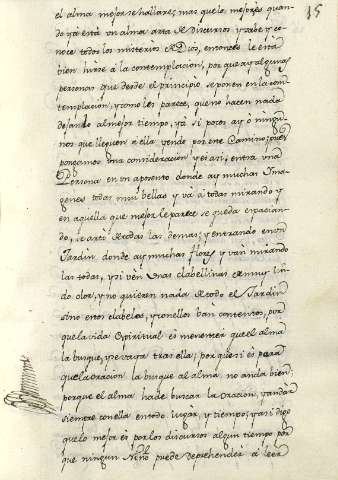 15
el alma mejor se hallare; mas que lo mejor es quan
do ya está un alma arta de discursos y sabe y co
noce todos los misterios de Dios, entonces le está
bien hirse a la contemplacion, por que ay algunas
personas que desde el principio se ponen en la con
templacion, y como les parece, que no hacen nada
dejando al mejor tiempo, y si pocos ay o ningu
nos que lleguen a ella vende por este Camino; pues
pongamos una consideracion y es asi; entra una
Persona en un aposento donde ay muchas Ima
genes todas mui bellas y vá a todas mirando y
en aquella que mejor le parece se queda espacian
do, se artó de todas las demas; y entrando en un
Jardin donde ay muchas flores y van mirando
las todas, y si vén unas clabellinas de muy lin
do olor, y no quieren nada de todo el Jardin
sino estos clabeles, y con ellos van contentos, por
que la vida Espiritual es menester que el alma
la busque, y se vaya tras ella; por que si es para
que la oracion la busque al alma no anda bien;
porque el alma ha de buscar la oracion, y andar
siempre con ella en todo lugar, y tiempo, y asi digo
que lo mejor es por los discursos algun tiempo por
que ningun Niño puede deprehender á leer